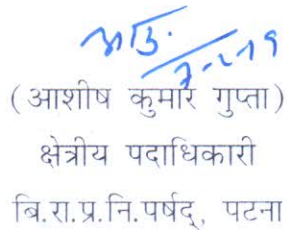 (आशीष कुमार गुप्ता)
क्षेत्रीय पदाधिकारी
बि.रा.प्र.नि.पर्षद्, पटना